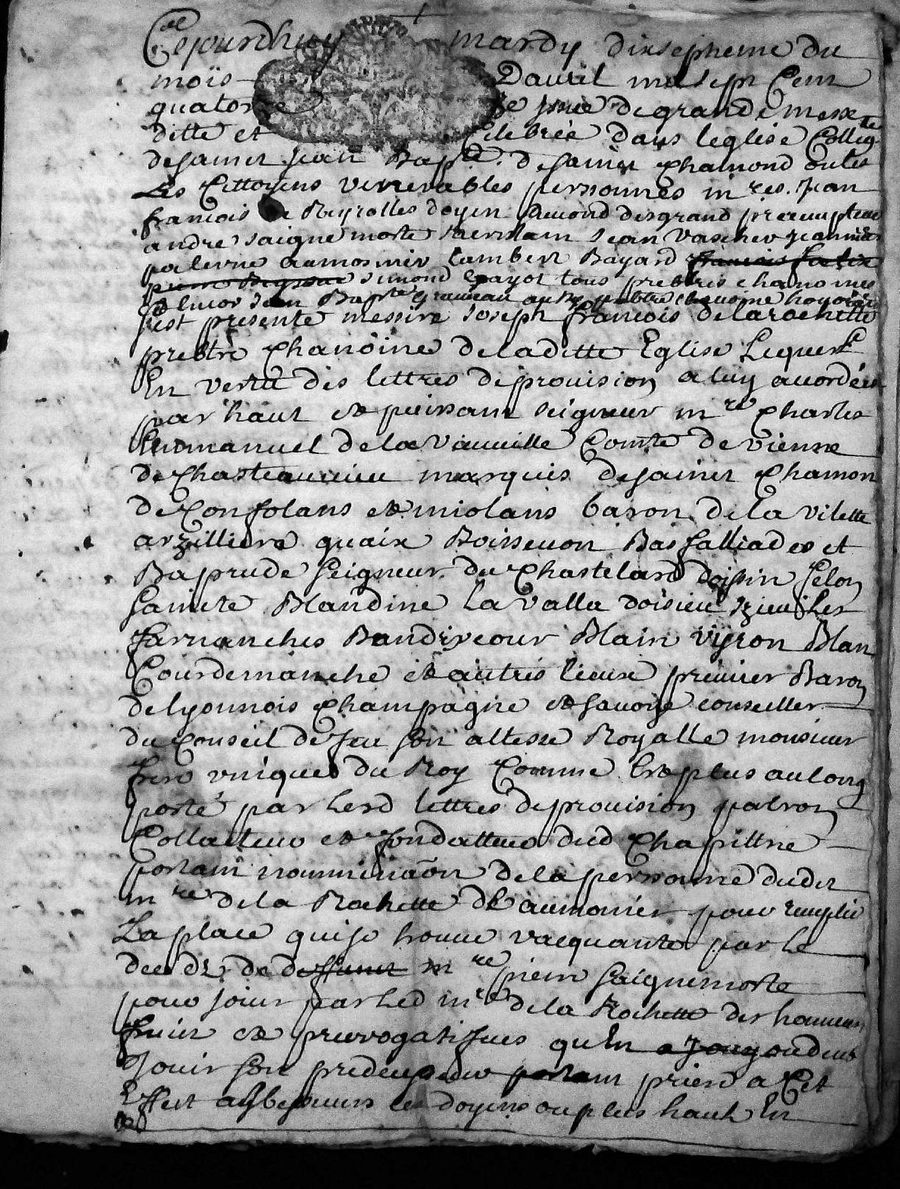 Cejourdhuy mardy dixseptieme du
mois Davril mil sept Cent
quatorze de grande messe
ditte et celebrée dans leglise Colleg
de saint Jean Bap.te de saint Chamond
Les Cittoyens venerables personnes m.res Jean
francois de Reyrolles doyen simond desgrand precempteur
andré saignemorte sacristain Jean Vascher
palerne aumosnier Lambert Bayard
simond payot tous prebtres chanoines
Jean Bap.te
sest presenté messire Joseph francois de la rochette
prebtre Chanoine de laditte Eglise Lequel
En vertu des lettres de provision a luy accordées
par haut et puissant seigneur m.re Charles
Emmanuel de la Vieuville Comte de vienne
de Chasteauvieu marquis de saint Chamon
de Confolans et miolans baron de la vilette
arzilliers quaix Boissenon Bas falliades et
Baprude seigneur du Chastelard doissin
sainte Blandine la valla doisieu izieu
farnanches Bandivecour Blain Blan
Courdemanche et autres lieux premier Baron
de lyonnois champagne et savoye conseiller
du Conseil de feu son altesse Royalle monsieur
frere unique du Roy Comme Est plus au long
porté par lesd lettres de provision patron
Collateur et fondatteur dud Chapittre
portant nommination de la personne dudit
m.re de la Rochette pour remplir
La place qui se trouve vacquante par le
deceds de deffunt m.re pierre saignemorte
pour jouir par led m.re de la Rochette des honneurs
fruits et prerogatifves quen
Jouir son predecesseur portant priere a Cet
Effect auxdits sieurs les doyens ou plus haut En